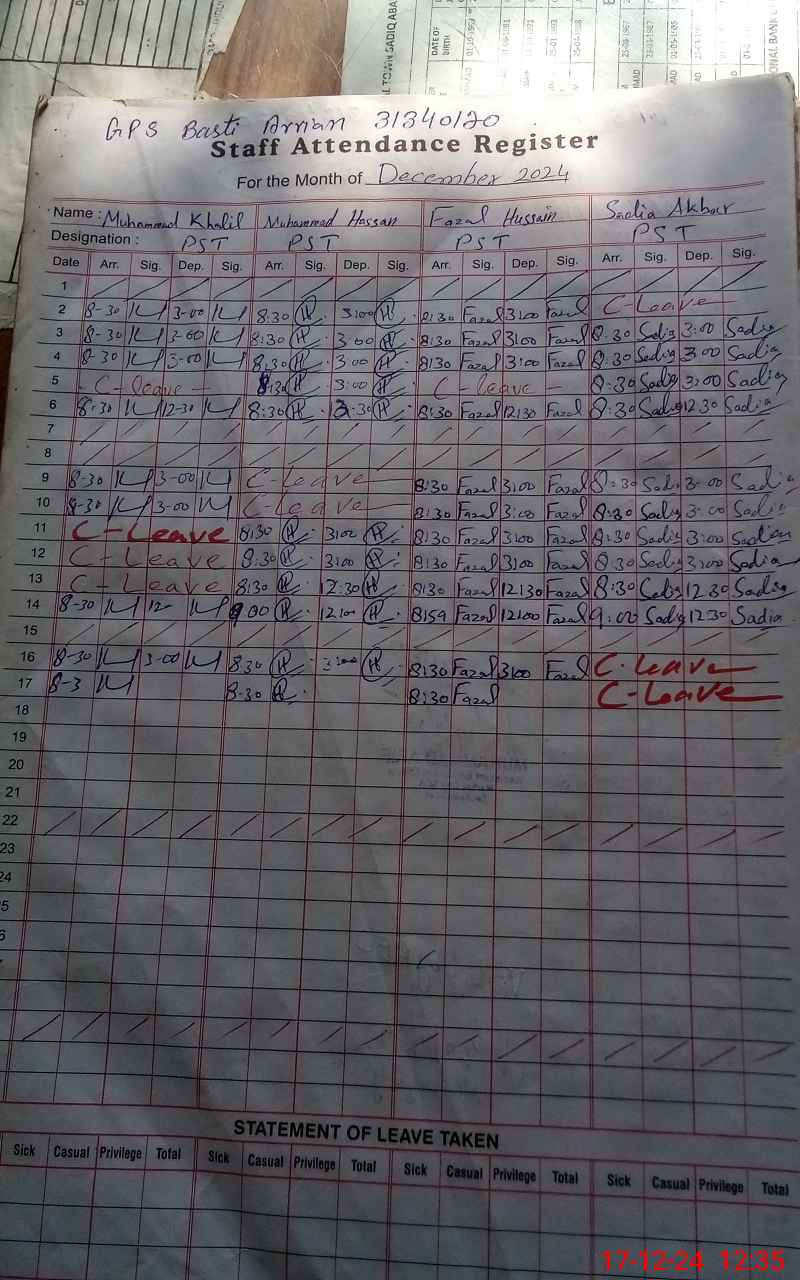 GPS Basti Arrian 31340120
Staff Attendance Register
For the Month of December 2024
Name : Muhammad Khalil Muhammad Hassan Fazal Hussain Sadia Akbar
Designation : PST PST PST PST
Date Arr. Sig. Dep. Sig. Arr. Sig. Dep. Sig. Arr. Sig. Dep. Sig. Arr. Sig. Dep. Sig.
1
2 8-30 3-00 8:30 H 3:00 H 8:30 Fazal 3:00 Fazal C-Leave
3 8-30 3-00 8:30 H 3:00 H 8:30 Fazal 3:00 Fazal 8:30 Sadia 3:00 Sadia
4 8-30 3-00 8:30 H 3:00 H 8:30 Fazal 3:00 Fazal 8:30 Sadia 3:00 Sadia
5 - C-leave - 8:30 H 3:00 H C-leave - 8:30 Sadia 3:00 Sadia
6 8:30 12-30 8:30 H 12:30 H 8:30 Fazal 12:30 Fazal 8:30 Sadia 12:30 Sadia
7
8
9 8-30 3-00 C-Leave 8:30 Fazal 3:00 Fazal 8:30 Sadia 3:00 Sadia
10 8-30 3-00 C-Leave 8:30 Fazal 3:00 Fazal 8:30 Sadia 3:00 Sadia
11 C-Leave 8:30 H 3:00 H 8:30 Fazal 3:00 Fazal 8:30 Sadia 3:00 Sadia
12 C-Leave 8:30 H 3:00 H 8:30 Fazal 3:00 Fazal 8:30 Sadia 3:00 Sadia
13 C-Leave 8:30 H 12:30 H 8:30 Fazal 12:30 Fazal 8:30 Sadia 12:30 Sadia
14 8-30 12- 9:00 H 12:00 H 8:59 Fazal 12:00 Fazal 9:00 Sadia 12:30 Sadia
15
16 8-30 3-00 8:30 H 3:00 H 8:30 Fazal 3:00 Fazal C-Leave
17 8-3 8:30 H 8:30 Fazal C-Leave
18
19
20
21
22
23
24
5
6
STATEMENT OF LEAVE TAKEN
Sick Casual Privilege Total Sick Casual Privilege Total Sick Casual Privilege Total Sick Casual Privilege Total
17-12-24 12:35